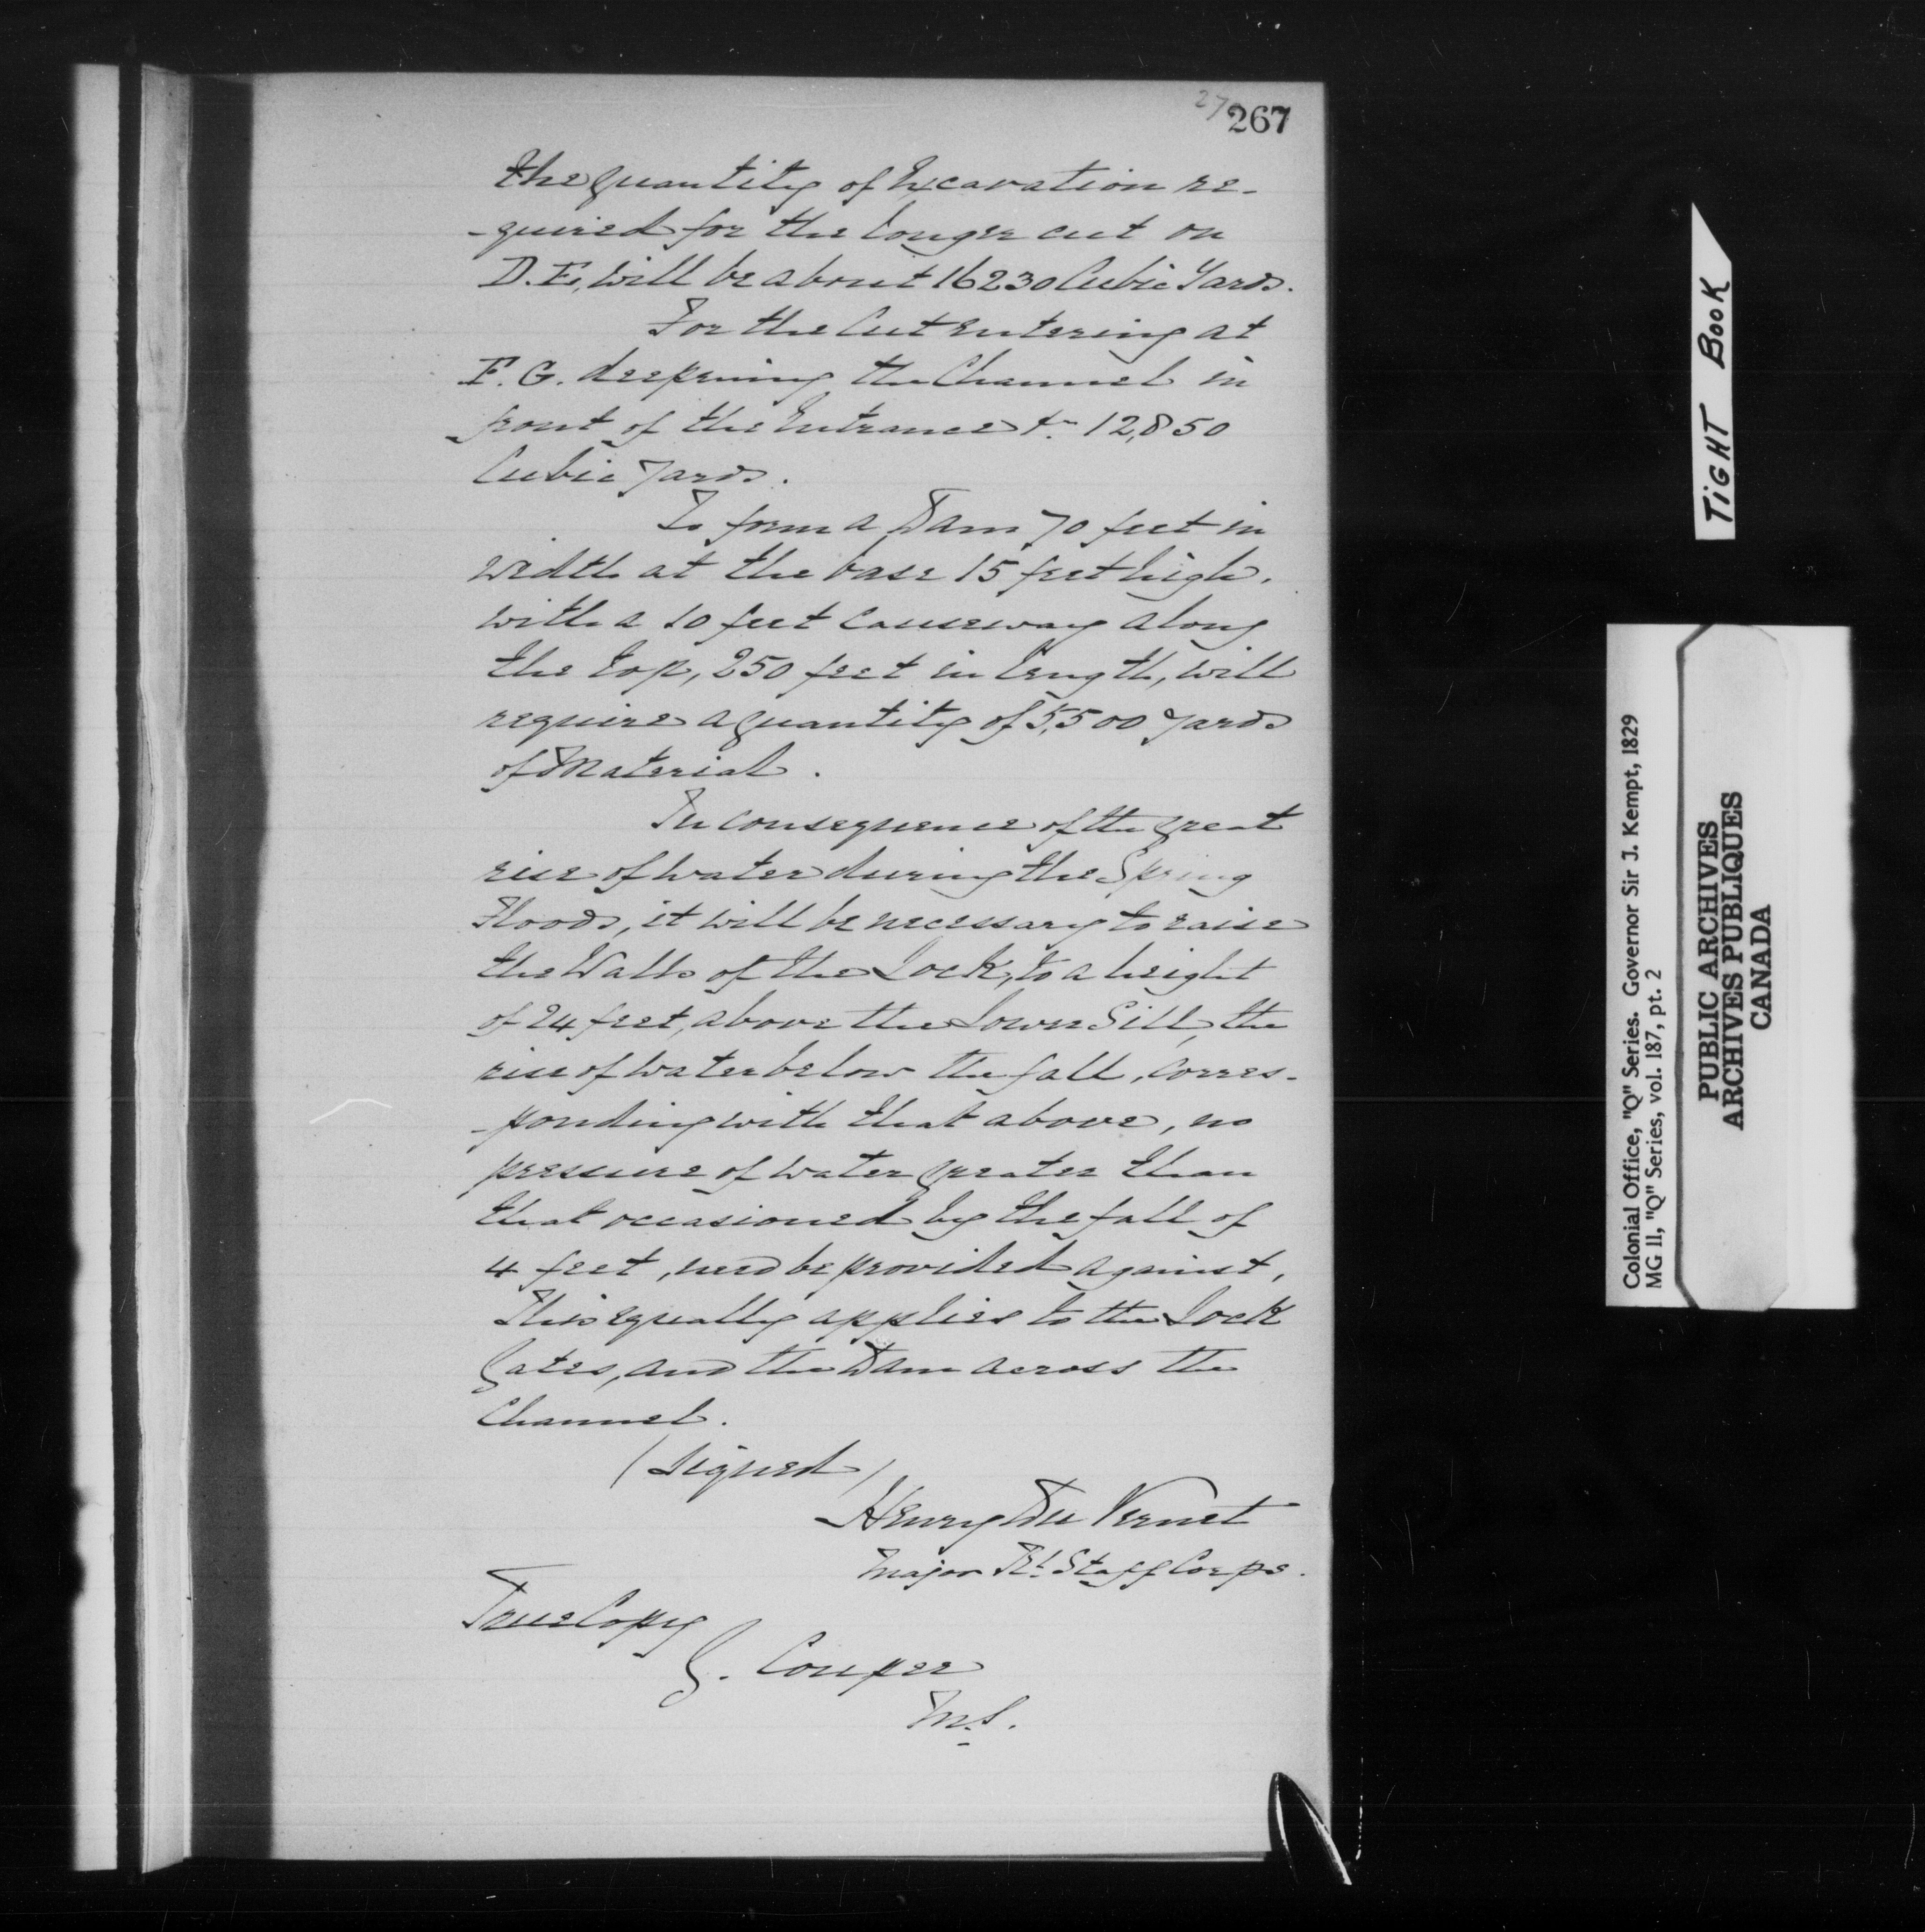 27
267
the quantity of Excavation re-
-quired for the longer cut on
D.E, will be about 16230 Cubic Yards.
For the Cut entering at
F. G. deepening the Channel in
front of the Entrance &c 12,850
Cubic yards.
To form a Dam 70 feet in
width at the base 15 feet high,
with a 10 feet Causeway along
the top, 250 feet in length, will
require a quantity of 5,500 yards
of Material.
In consequence of the great
rise of water during the Spring
Floods, it will be necessary to raise
the Walls of the Lock, to a height
of 24 feet, above the Lower Sill, the
rise of water below the fall, corres-
-ponding with that above, no
pressure of water greater than
that occasioned by the fall of
4 feet, need be provided against,
This equally applies to the Lock
Gates, and the Dam across the
Channel.
(Signed)
Henry Du Vernet
Major Rl. Staff Corps.
True Copy
G. Couper
M.S.
TIGHT BOOK
Colonial Office, "Q" Series. Governor Sir J. Kempt, 1829
MG 11, "Q" Series, vol. 187, pt. 2
PUBLIC ARCHIVES
ARCHIVES PUBLIQUES
CANADA